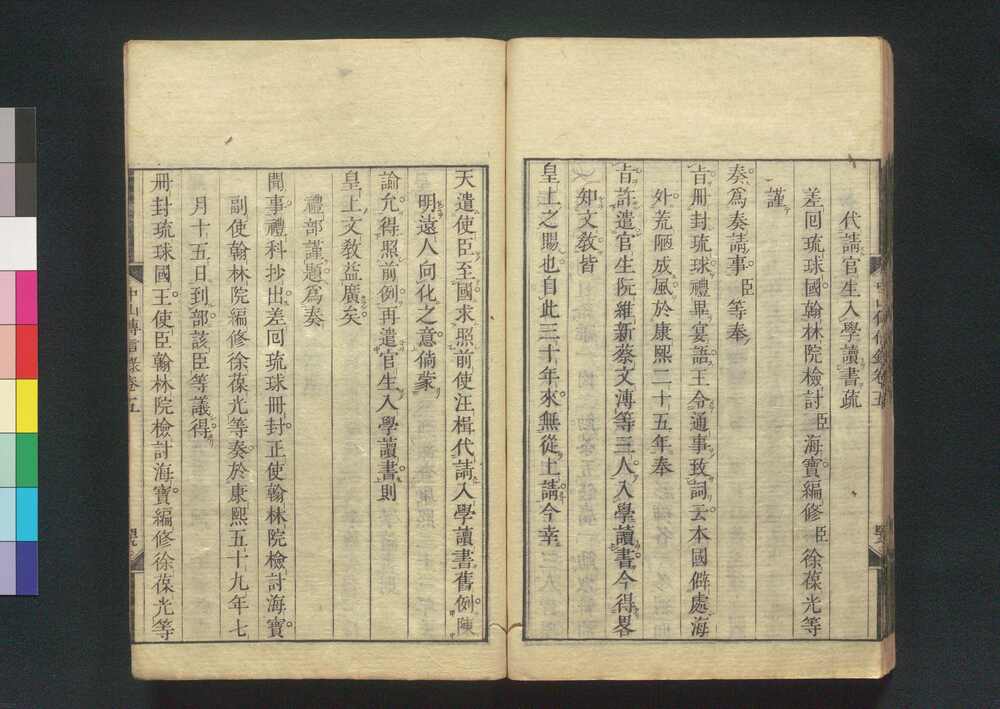 代請官生入學讀書疏
差回琉球國翰林院檢討臣海寶編修臣徐葆光等
謹
奏爲奏請事臣等奉
旨冊封琉球禮畢宴語王令通事致詞云本國僻處海
外荒陋成風於康熙二十五年奉
旨許遣官生阮維新蔡文溥等三人入學讀書今得畧
知文敎皆
皇上之賜也自此三十年來無從上請今幸
天遣使臣至國求照前使汪楫代請入學讀書舊例陳
明遠人向化之意倘蒙
諭允得照前例再遣官生入學讀書則
皇上文敎益廣矣
禮部謹題爲奏
聞事禮科抄出差回琉球冊封正使翰林院檢討海寶
副使翰林院編修徐葆光等奏於康熙五十九年七
月十五日到部該臣等議得
冊封琉球國王使臣翰林院檢討海寶編修徐葆光等
中山傳信錄卷五